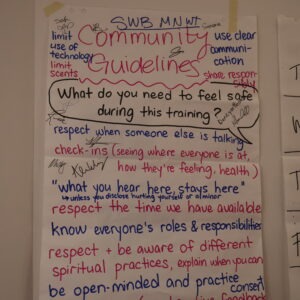 SWB MNWT
Community
Guidelines
limit
use of
technology
limit
scents
use clear
communi-
cation
share respon-
sibility
What do you need to feel safe
during this training?
respect when someone else is talking
check-ins (seeing where everyone is at,
how they're feeling, health)
"what you hear here, stays here"
unless you disclose hurting yourself or a minor
respect the time we have available
know everyone's roles & responsibilities
respect + be aware of different
spiritual practices, explain when you can
be open-minded and practice
consent
feedback